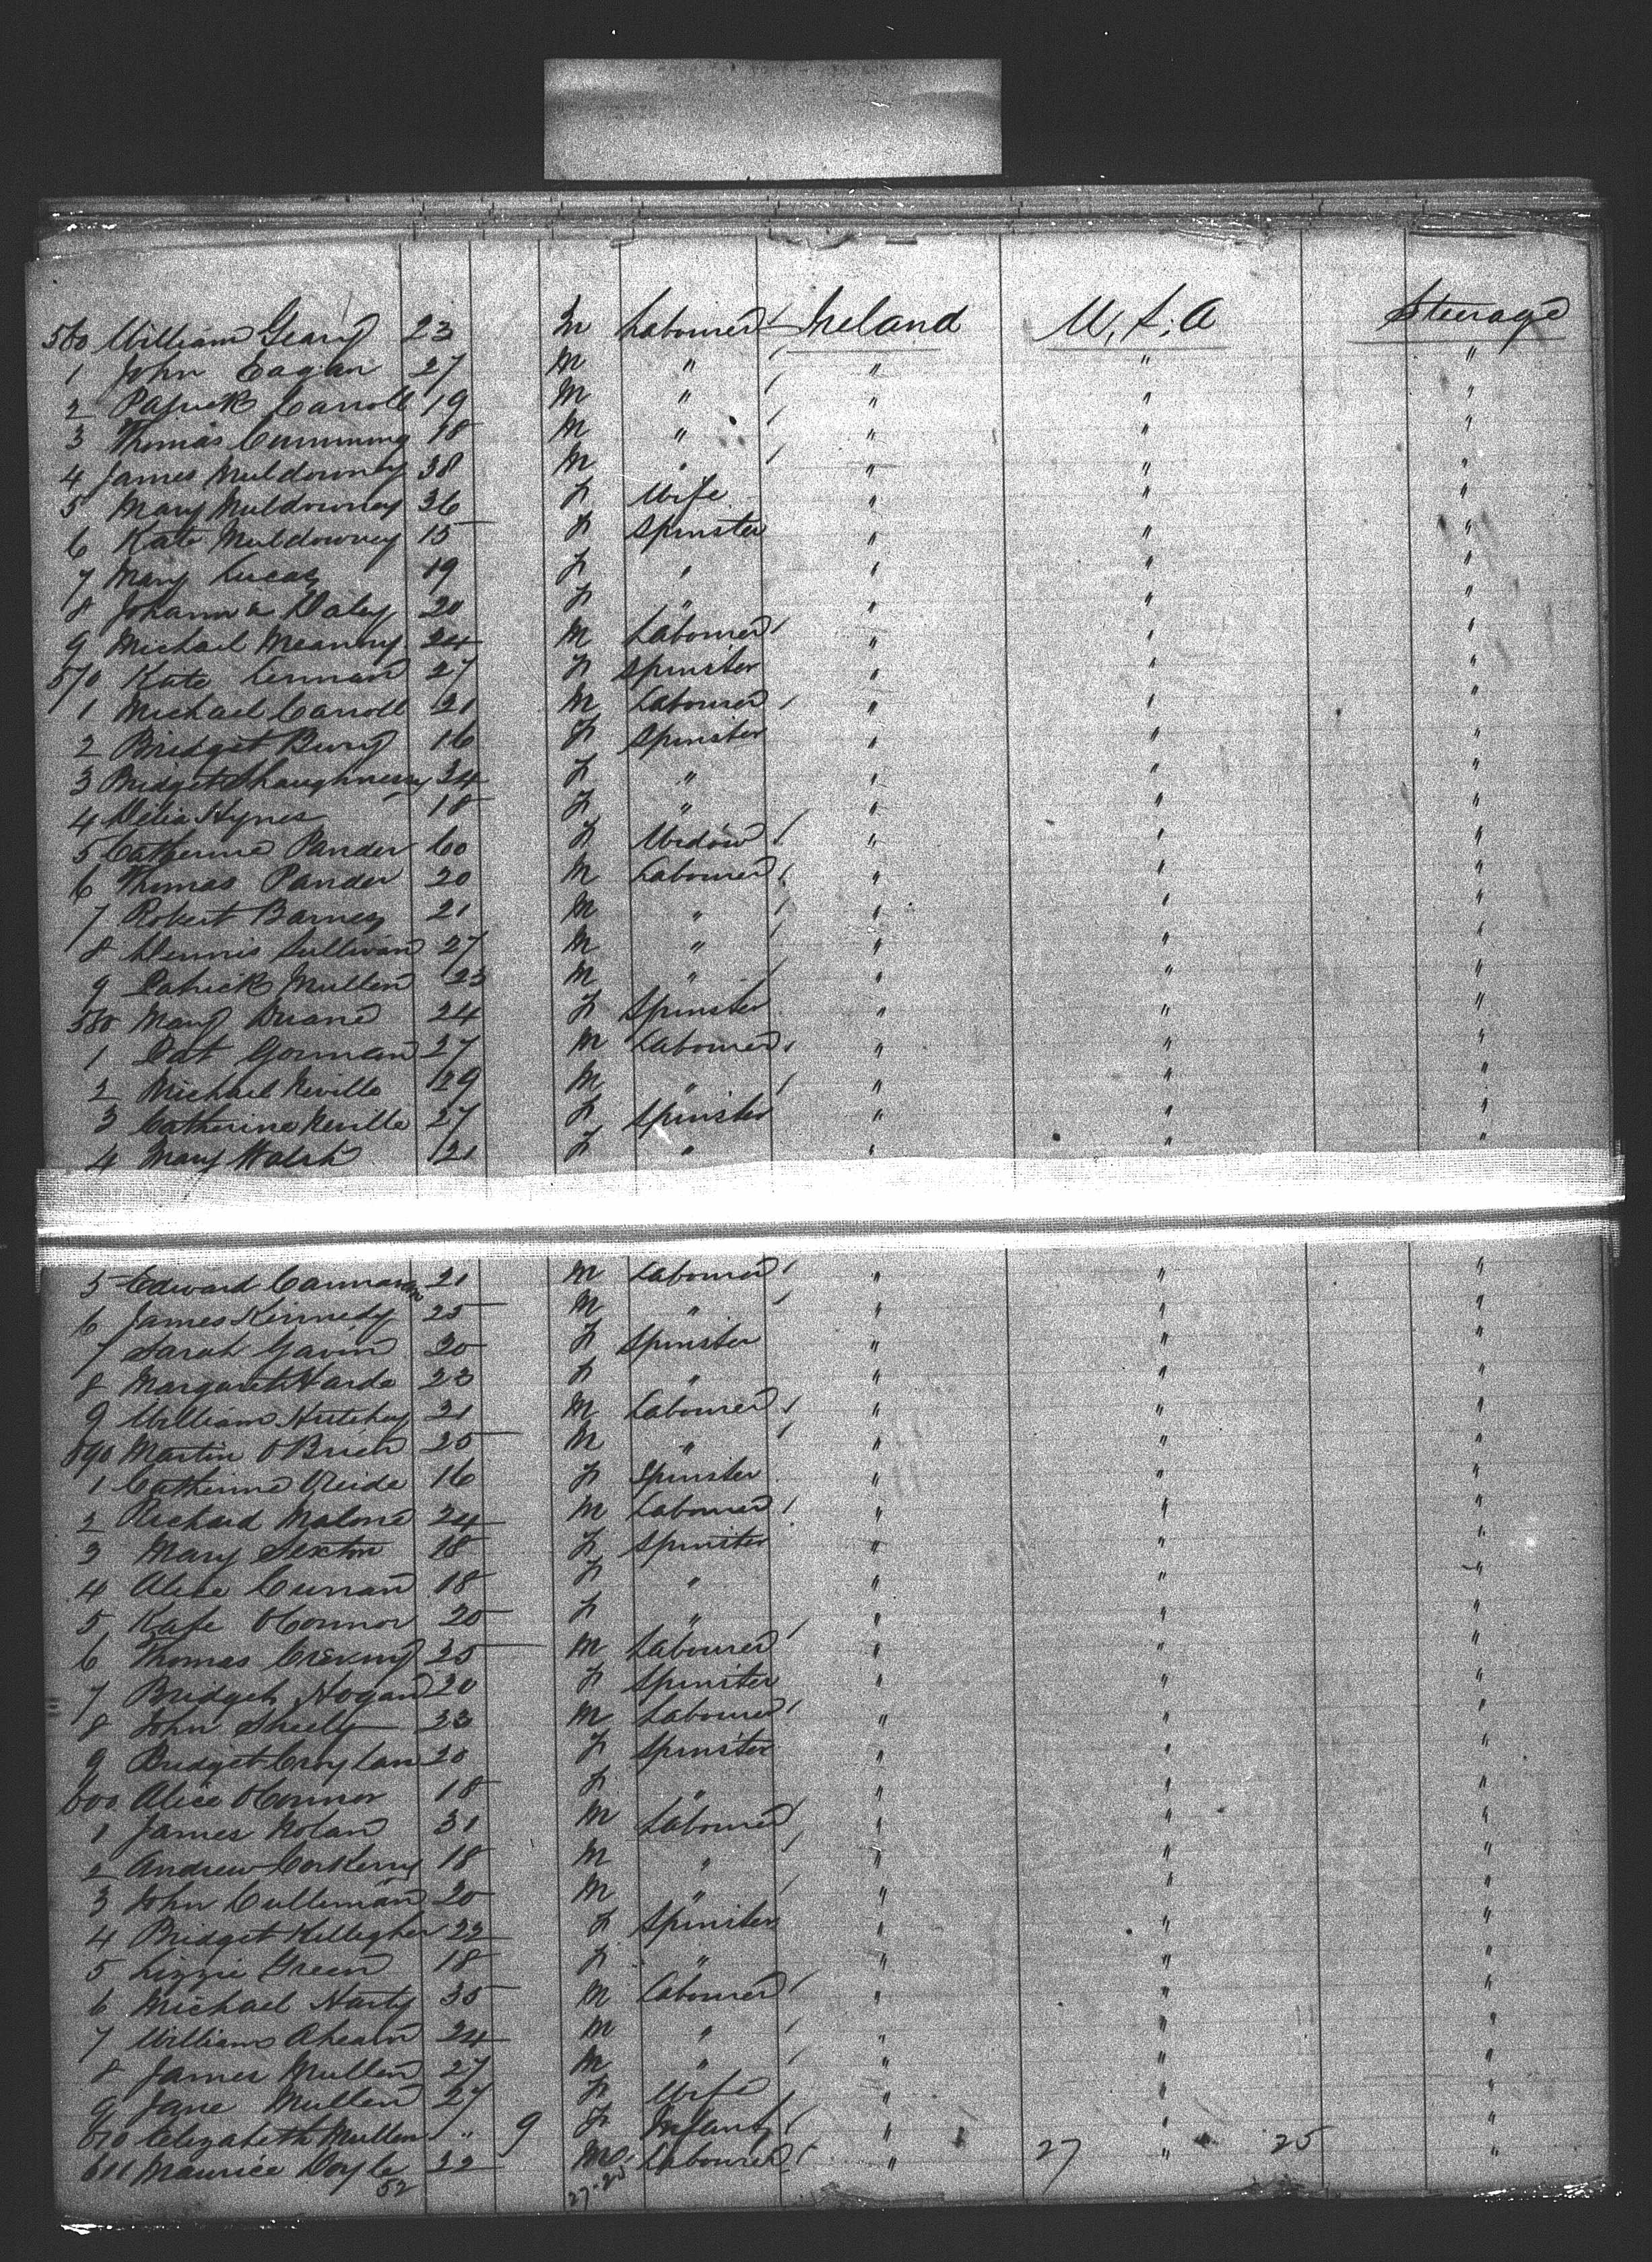 560 William Geary 23 M Labourer Ireland U.S.A Steerage
1 John Eagan 27 M " " " "
2 Patrick Carroll 19 M " " " "
3 Thomas Cumming 18 M " " " "
4 James Muldowney 38 M " " " "
5 Mary Muldowney 36 F Wife " " "
6 Kate Muldowney 15 F Spinster " " "
7 Mary Lucas 19 F " " " "
8 Johanna Daley 20 F " " " "
9 Michael Meanny 24 M Labourer " " "
570 Kate Lennan 27 F Spinster " " "
1 Michael Carroll 21 M Labourer " " "
2 Bridget 16 F Spinster " " "
3 Bridget Shaughnessy 24 F " " " "
4 Delia Hynes 18 F " " " "
5 Catherine Pander 60 F Widow " " "
6 Thomas Pander 20 M Labourer " " "
7 Robert Barnes 21 M " " " "
8 Dennis Sullivan 27 M " " " "
9 Patrick Mullen 23 M " " " "
580 Mary Duane 24 F Spinster " " "
1 Pat Gorman 27 M Labourer " " "
2 Michael Neville 29 M " " " "
3 Catherine Neville 27 F Spinster " " "
4 Mary Walsh 21 F " " " "
5 Edward 21 M Labourer " " "
6 James Kennedy 25 M " " " "
7 Sarah Gavin 20 F Spinster " " "
8 Margaret Warde 23 F " " " "
9 William 21 M Labourer " " "
590 Martin O'Brien 25 M " " " "
1 Catherine 16 F Spinster " " "
2 Richard Malone 24 M Labourer " " "
3 Mary Sexton 18 F Spinster " " "
4 Alice Curran 18 F " " " "
5 Kate O'Connor 20 F " " " "
6 Thomas 25 M Labourer " " "
7 Bridget Hogan 20 F Spinster " " "
8 John Sheely 23 M Labourer " " "
9 Bridget 20 F Spinster " " "
600 Alice O'Connor 18 F " " " "
1 James Nolan 31 M Labourer " " "
2 Andrew Corkerry 18 M " " " "
3 John Culleman 20 M " " " "
4 Bridget Killegher 22 F Spinster " " "
5 Lizzie Green 18 F " " " "
6 Michael Harty 35 M Labourer " " "
7 William Ahearn 24 M " " " "
8 James Mullen 27 M " " " "
9 Jane Mullen 27 F Wife " " "
610 Elizabeth Mullen " 9 F Infant " " "
611 Maurice Doyle 22 M Labourer " 27 " 25 "
52 27-25